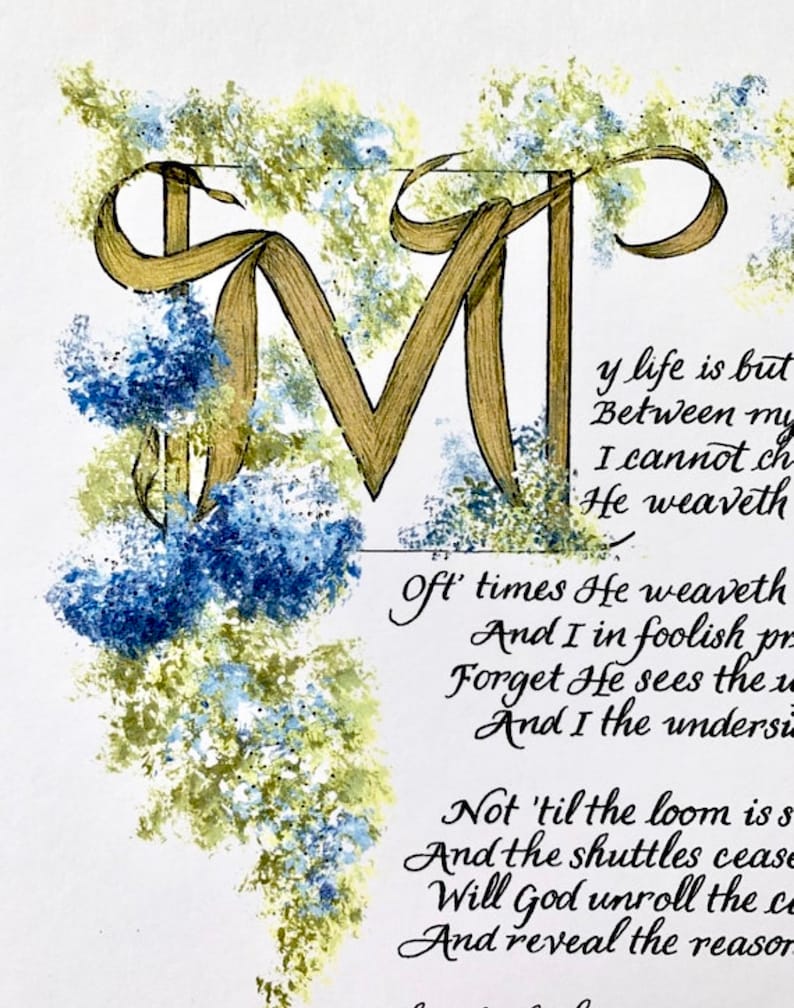 My life is but
Between my
I cannot ch
He weaveth
Oft' times He weaveth
And I in foolish pr
Forget He sees the u
And I the undersi
Not 'til the loom is s
And the shuttles cease
Will God unroll the ca
And reveal the reason